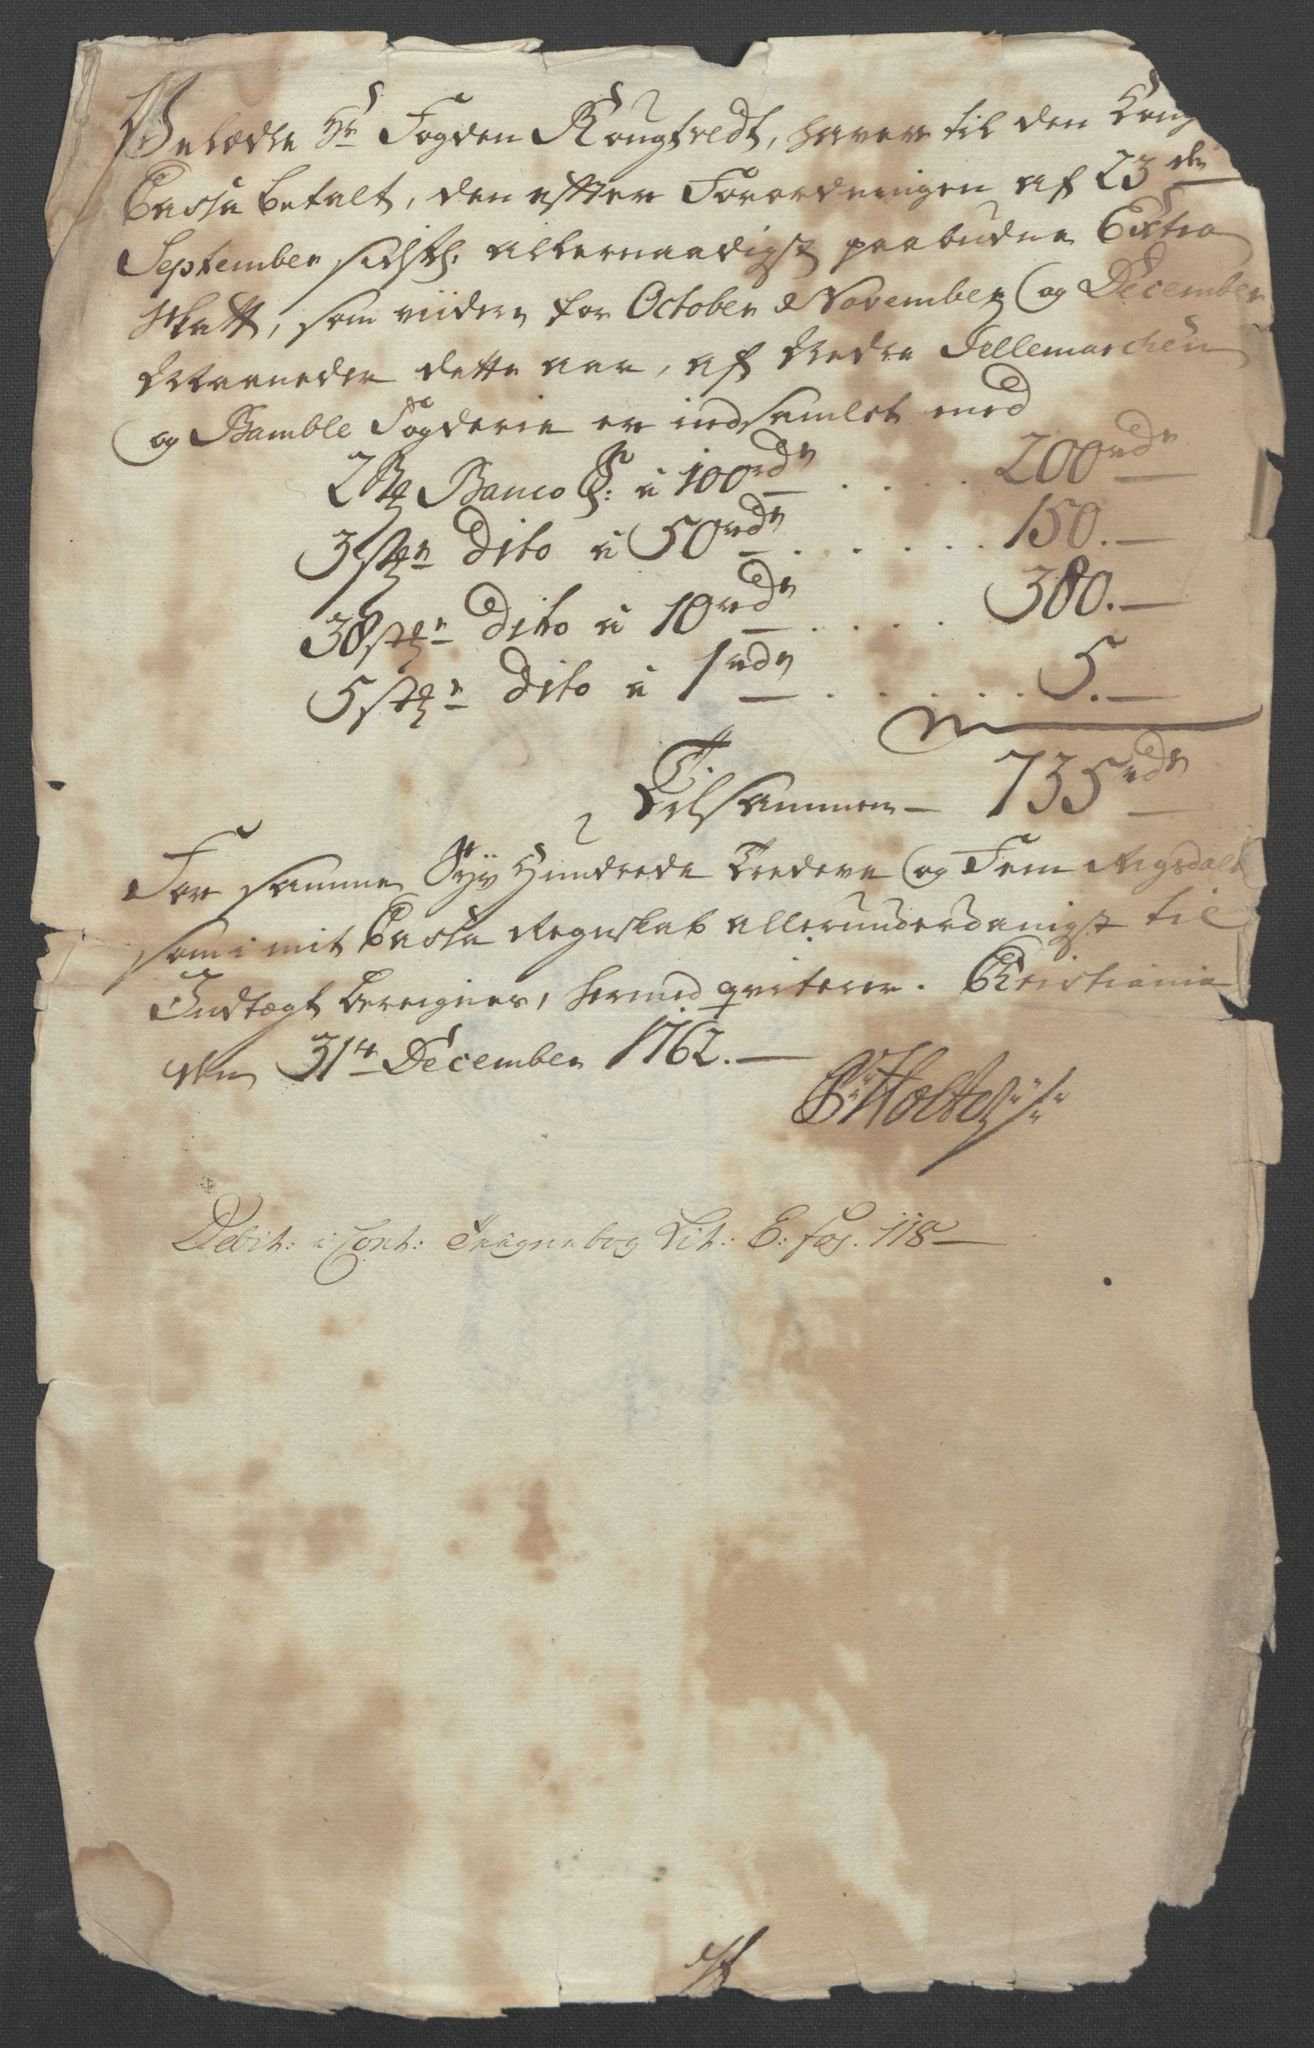 Velædle Hr Fogden Kougstedt, haver til den Kong
Cassa betalt, den efter Forordningen af 23de
September sidstl: allernaadigst paabudne Extra
Skatt, som viidere for October November og December
Maaneder dette aar, af Nedre Tellemarchen
og Bamble Fogderie er indsamlet med
2 Banco S: a 100rdr .... 200rdr
3 stkr Dito a 50rdr ...... 150.
38 stkr Dito a 10rdr ..... 380.
5 stkr Dito a 1rdr ...... 5.
Tilsammen 735rdr
For samme Syv Hundrede Tredeve og Fem Rigsdaler
som i mit Cassa Regnskab allerunderdanigst til
Indtægt beregnes, hermed qviterer. Christiania
den 31te December 1762.
P: Holtes
Debit: i Cont: Bog Lit: E: fol. 118